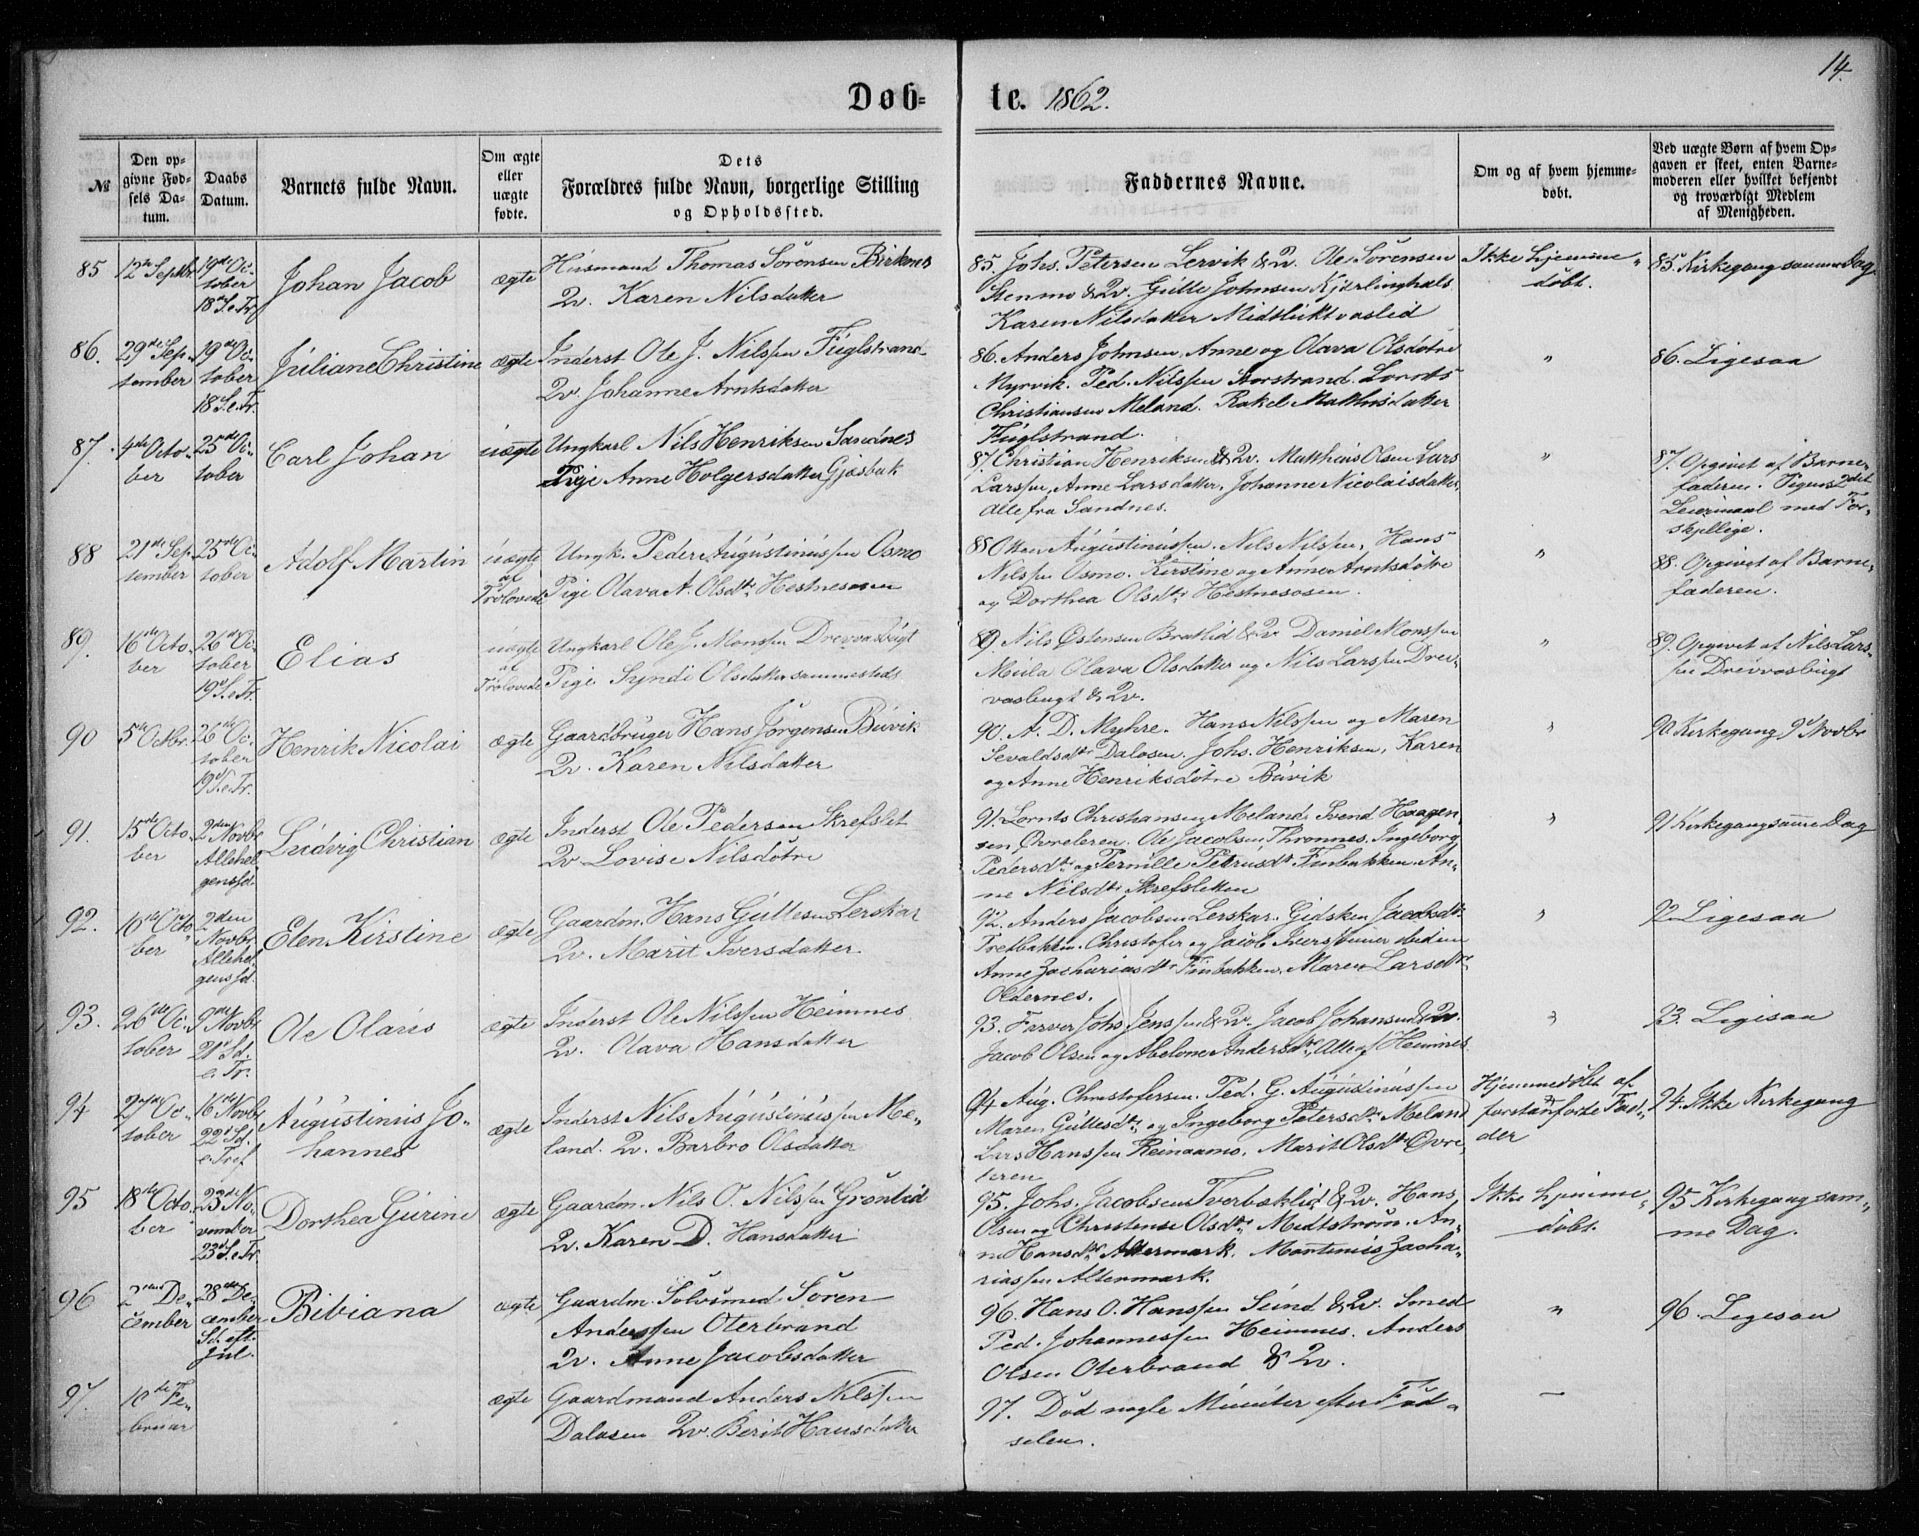 14.
Døb-
te. 1862.
№
Den op-
givne Fød-
sels Da-
tum.
Daabs
Datum.
Barnets fulde Navn.
Om ægte
eller
uægte
fødte.
Dets
Forældres fulde Navn, borgerlige Stilling
og Opholdssted.
Faddernes Navne.
Om og af hvem hjemme-
døbt.
Ved uægte Børn af hvem Op-
gaven er skeet, enten Barne-
moderen eller hvilket bekjendt
og troværdigt Medlem
af Menigheden.
85
12te Septbr
19de Oc-
tober
18 S. e. Tr.
Johan Jacob
ægte
Husmand Thomas Sörensen Birknes
Qv. Karen Nilsdatter
85. Johs. Petersen Lervik & Qv. Ole Sörensen
Stenmo & Qv. Gutte Johnsen Kjerlinghals
Karen Nilsdatter
Ikke hjemme-
döbt.
85. Kirkegang samme Dag
86.
29de Sep-
tember
19de Oc-
tober
18 S. e. Tr.
Juliane Christine
ægte
Inderst Ole J. Nilssen Fuglstrand
Qv. Johanne Arntsdatter
86. Anders Johnsen, Anne og Olava Olsdötre
Myrvik. Ped. Nilssen Storstrand. Lornts
Christiansen Meland. Rakel Matthisdatter
Fuglstrand.
"
86. Ligesaa
87.
4de Octo-
ber
25de Oc-
tober
Carl Johan
uægte
Ungkarl Nils Henriksen Sandnes
Pige Anne Holgersdatter Gjösbak
87. Christian Henriksen & Qv. Matthius Olsen Lars
Larssen, Anne Larsdatter, Johanne Nicolaisdatter,
Alle fra Sandnes.
"
87. Opgivet af Barne-
faderen. Pigens 2det
Leiermaal med For-
skjellige.
88
21de Sep-
tember
25de Oc-
tober
Adolf Martin
uægte
af
Trolovede
Ungk. Peder Augustinussen Osmo
Pige Olava A. Olsdtr Hestnesosen
88 Augustinussen. Nils Nilssen, Hans
Nilssen Osmo. Kirstine og Anne Arntsdötre
og Dorthea Olsdtr Hestnesosen.
"
88. Opgivet af Barne-
faderen.
89.
16de Octo-
ber
26de Oc-
tober
19 S. e. Tr.
Elias
uægte
af
Trolovede
Ungkarl Ole J. Monssen Drevvasbugt
Pige Syndi Olsdatter sammesteds
89 Nils Østensen Bratlid & Qv Daniel Monssen
Mula Olava Olsdatter og Nils Larssen Drev-
vasbugt & Qv.
"
89. Opgivet af Nils Lars-
sen Drevvasbugt
90
5te Octbr.
26de Oc-
tober
19 S. e. Tr.
Henrik Nicolai
ægte
Gaardbruger Hans Jörgensen Buvik
Qv. Karen Nilsdatter
90. A. D. Myhre. Hans Nilssen og Maren
Sevaldsdtr Dalosen. Johs. Henriksen, Karen
og Anne Henriksdötre Buvik
"
90 Kirkegang 9de Novbr
91.
15de Octo
ber
2den Novbr
Allehel-
genssd.
Ludvig Christian
ægte
Inderst Ole Pedersen Skrefslet
Qv Lovise Nilsdötre
91. Lornts Christiansen Meland. Svend Haagen-
sen Övreleren. Ole Jacobsen Thronnes. Ingeborg
Pedersdtr og Pernille Petrusdtr Finbakken. An-
ne Nilsdtr Skrefsletten
"
91 Kirkegang samme Dag
92.
16de Octo
ber
2den
Novbr.
Allehel-
genssd.
Elen Kirstine
ægte
Gaardm. Hans Guttesen Lerskar
Qv. Marit Iversdatter
92. Anders Jacobsen Lerskar. Gidsken Jacobsdtr
Tretbakken. Christofer og Jacob
Anne Zachariasdtr Finbakken. Maren Larsdtr
Oldernes.
"
92 Ligesaa
93.
26de Oc-
tober
9de Novbr
21 Sd.
e. Tr.
Ole Olaus
ægte
Inderst Ole Nilssen Heimnes
Qv. Olava Hansdatter
93. Farver Johs Jenssen & Qv. Jacob Johansen & Qv.
Jacob Olsen og Abelone Andersdtr, Alle af Heimnes
"
93. Ligesaa
94
27de Oc-
tober
16de Novbr
22 Sd.
e. Tref.
Augustinus Jo-
hannes
ægte
Inderst Nils Augustinussen Me-
land. Qv. Barbro Olsdatter
94 Aug. Christofersen. Ped. G. Augustinussen
Maren Guttesdtr, og Ingeborg Petersdtr Meland
Lars Hanssen Reinaamo. Marit Olsdtr Övre-
leren
Hjemmedöbt af
foranførte Fad-
der
94. Ikke Kirkegang
95
18de Octo
ber
23de No-
vember
23 S. e. Tr.
Dorthea Gurine
ægte
Gaardm. Nils O. Nilssen Gröntlid
Qv. Karen D. Hansdatter
95. Johs. Jacobsen Tverbæklid & Qv. Hans
Olsen og Christense Olsdtr Midtstrøm. An-
ne Hansdtr Altermark. Martinus Zacha-
riassen Altermark.
Ikke hjemme-
döbt.
95 Kirkegang sam-
me Dag.
96
2den De-
cember
28de De-
cember
Sd. eft.
Jul.
Bibiana
ægte
Gaardm. Sölvsmed Sören
Anderssen Oterbrand
Qv. Anne Jacobsdatter
96. Hans O. Hanssen Sund & Qv. Smed
Ped. Johannessen Heimnes. Anders
Olsen Oterbrand & Qv.
"
96. Ligesaa
97.
10de Fe-
bruar
ægte
Gaardmand Anders Nilssen
Dalosen Qv. Berit Hansdatter
97. Död nogle Minuter efter Föd-
selen.
—